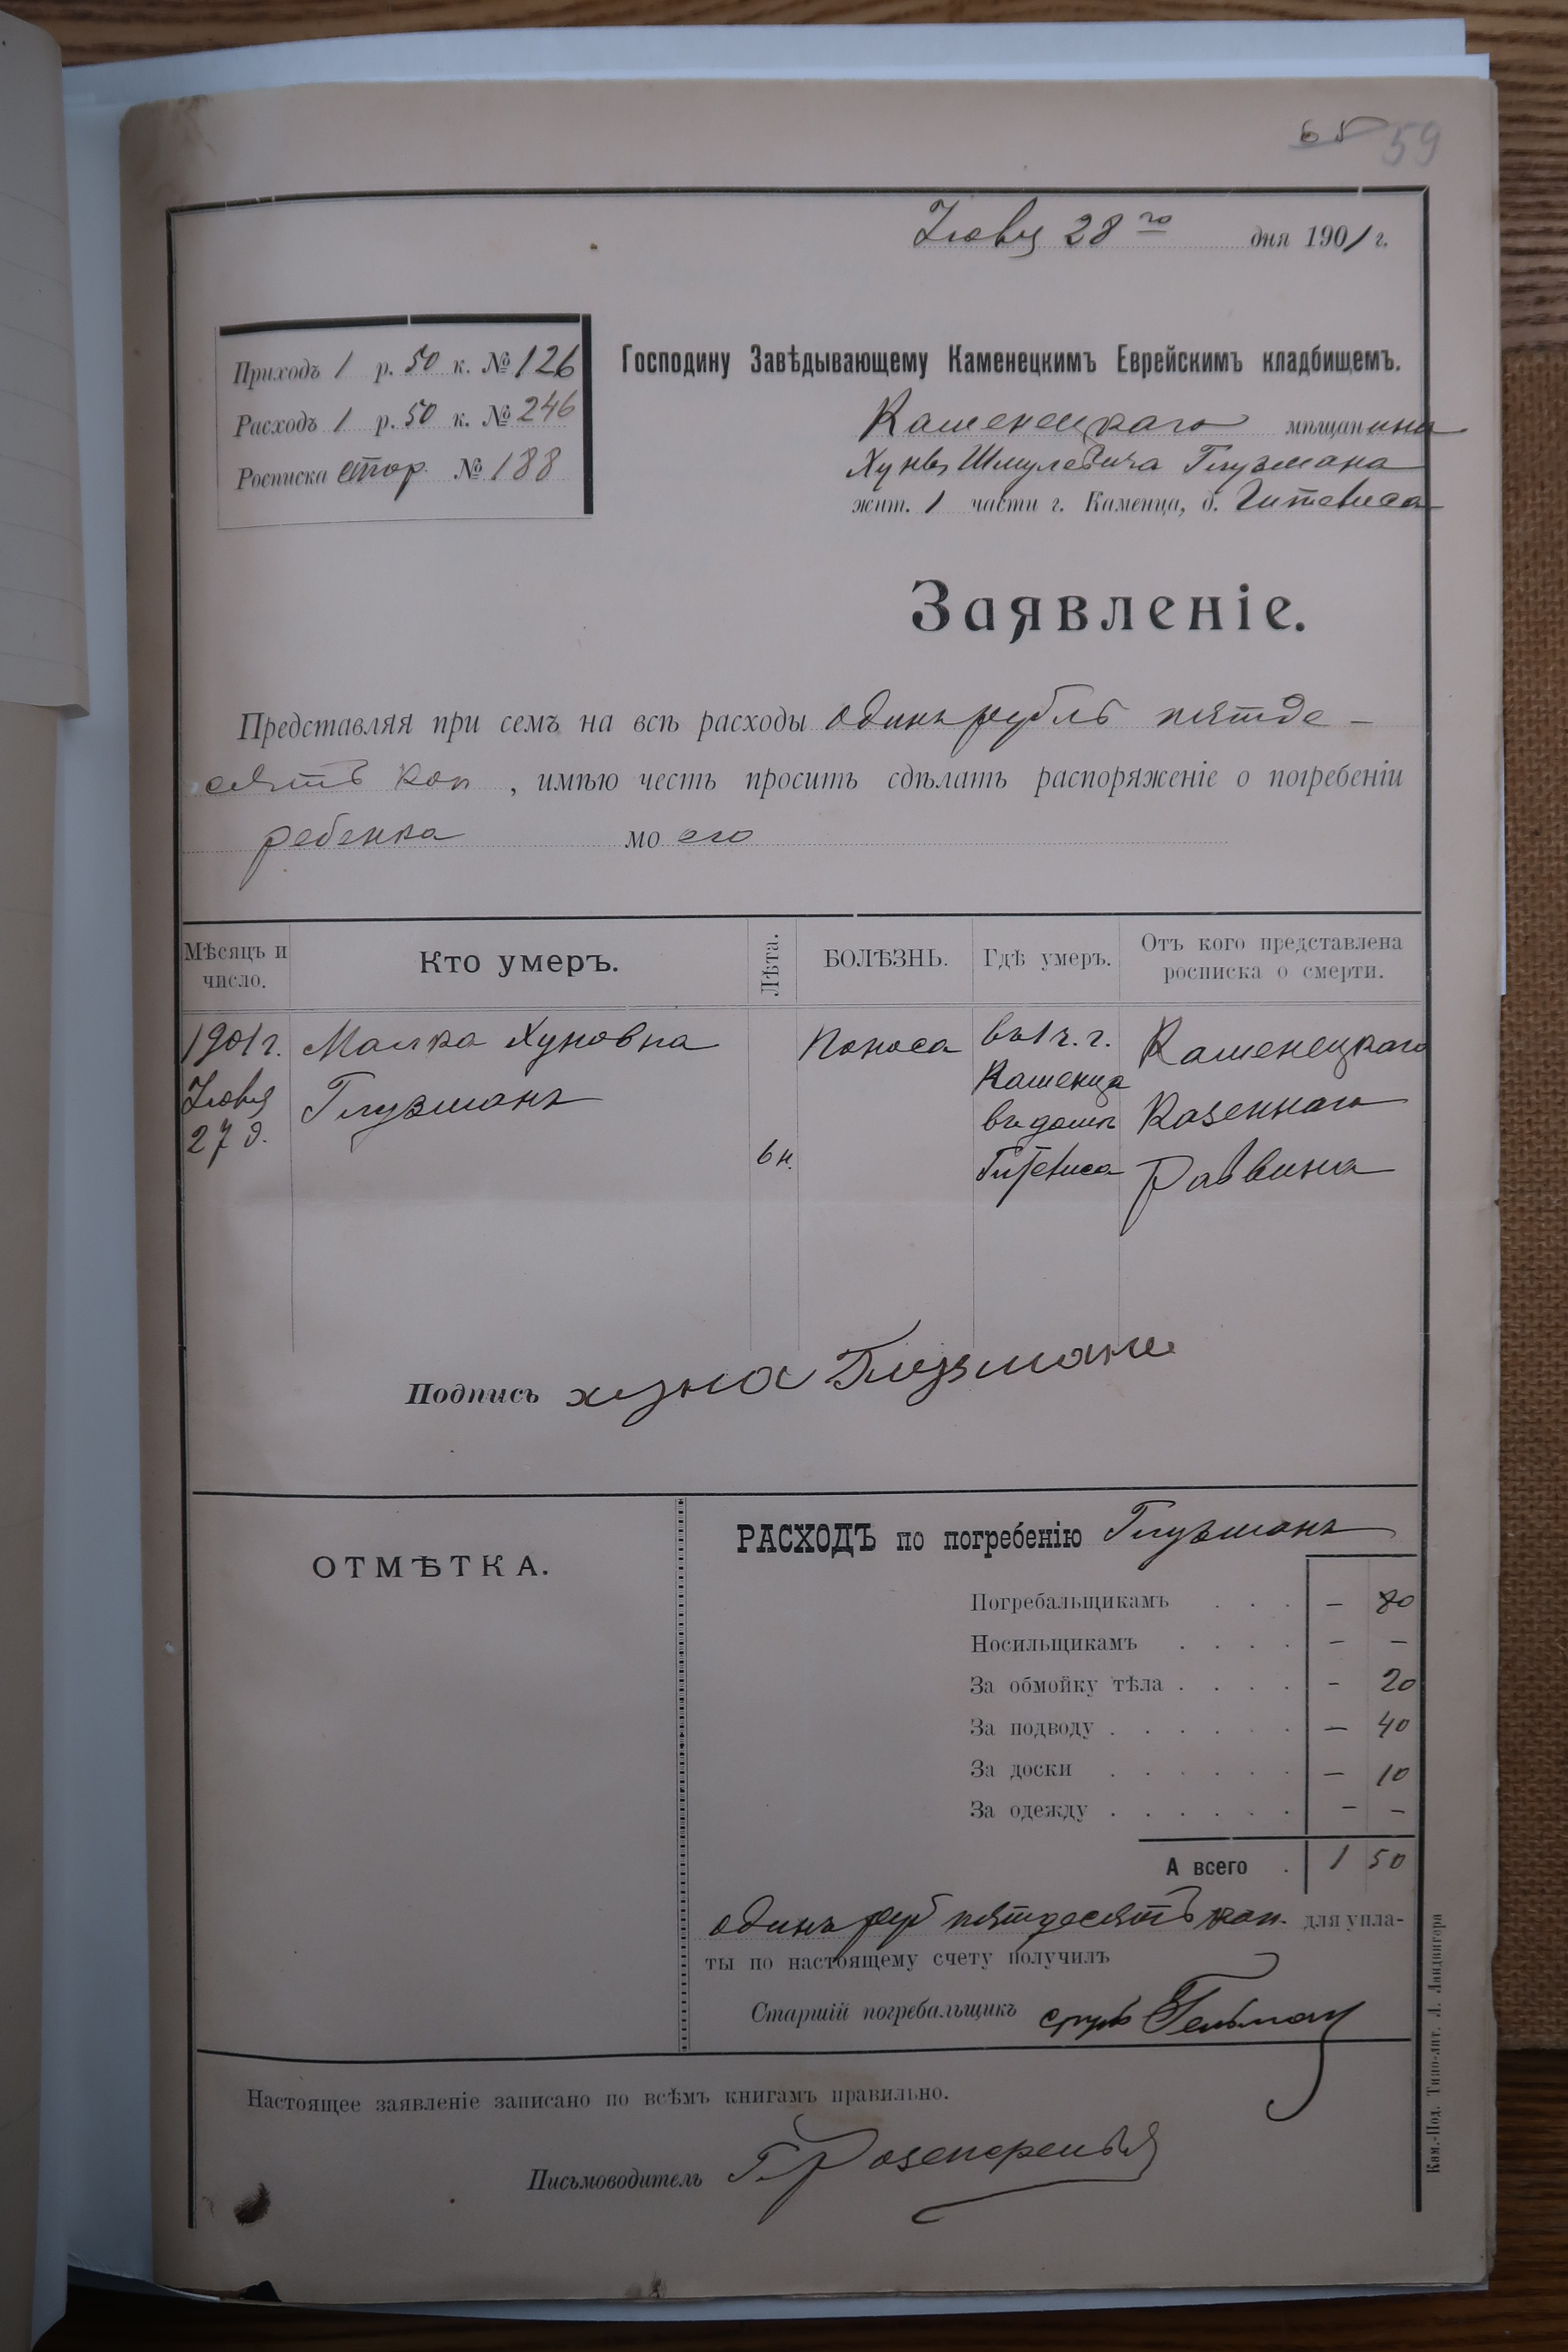 65 59
Іюня 28 го дня 1901 г.
Приходъ 1 р. 50 к. № 126
Расходъ 1 р. 50 к. № 246
Росписка стор. № 188
Господину Завѣдывающему Каменецкимъ Еврейскимъ кладбищемъ.
Каменецкаго мѣщанина
Хуны Шмулевича Глузмана
жит. 1 части г. Каменца, д. Гитевиса
Заявленіе.
Представляя при семъ на всѣ расходы одинъ рубль пятьде-
сятъ коп , имѣю честь просить сдѣлать распоряженіе о погребеніи
ребенка моего
Мѣсяцъ и число.
Кто умеръ.
Лѣта.
БОЛѢЗНЬ.
Гдѣ умеръ.
Отъ кого представлена росписка о смерти.
1901 г. Малка Хуновна Поноса въ 1 ч. г. Каменецкаго
Іюня Глузманъ Каменца Казеннаго
27 д. 6 н. въ домѣ Раввина
Гитевиса
Подпись хуна Глузман
ОТМѢТКА.
РАСХОДЪ по погребенію Глузманъ
Погребальщикамъ . . . — 80
Носильщикамъ . . . . — —
За обмойку тѣла . . . . - 20
За подводу . . . . . . — 40
За доски . . . . . . — 10
За одежду . . . . . . — —
А всего . 1 50
одинъ руб пятьдесятъ коп. для упла-
ты по настоящему счету получилъ
Старшій погребальщикъ сруль Гельман
Настоящее заявленіе записано по всѣмъ книгамъ правильно.
Письмоводитель Г.
Кам.-Под. Типо-лит. Л. Ландвигера